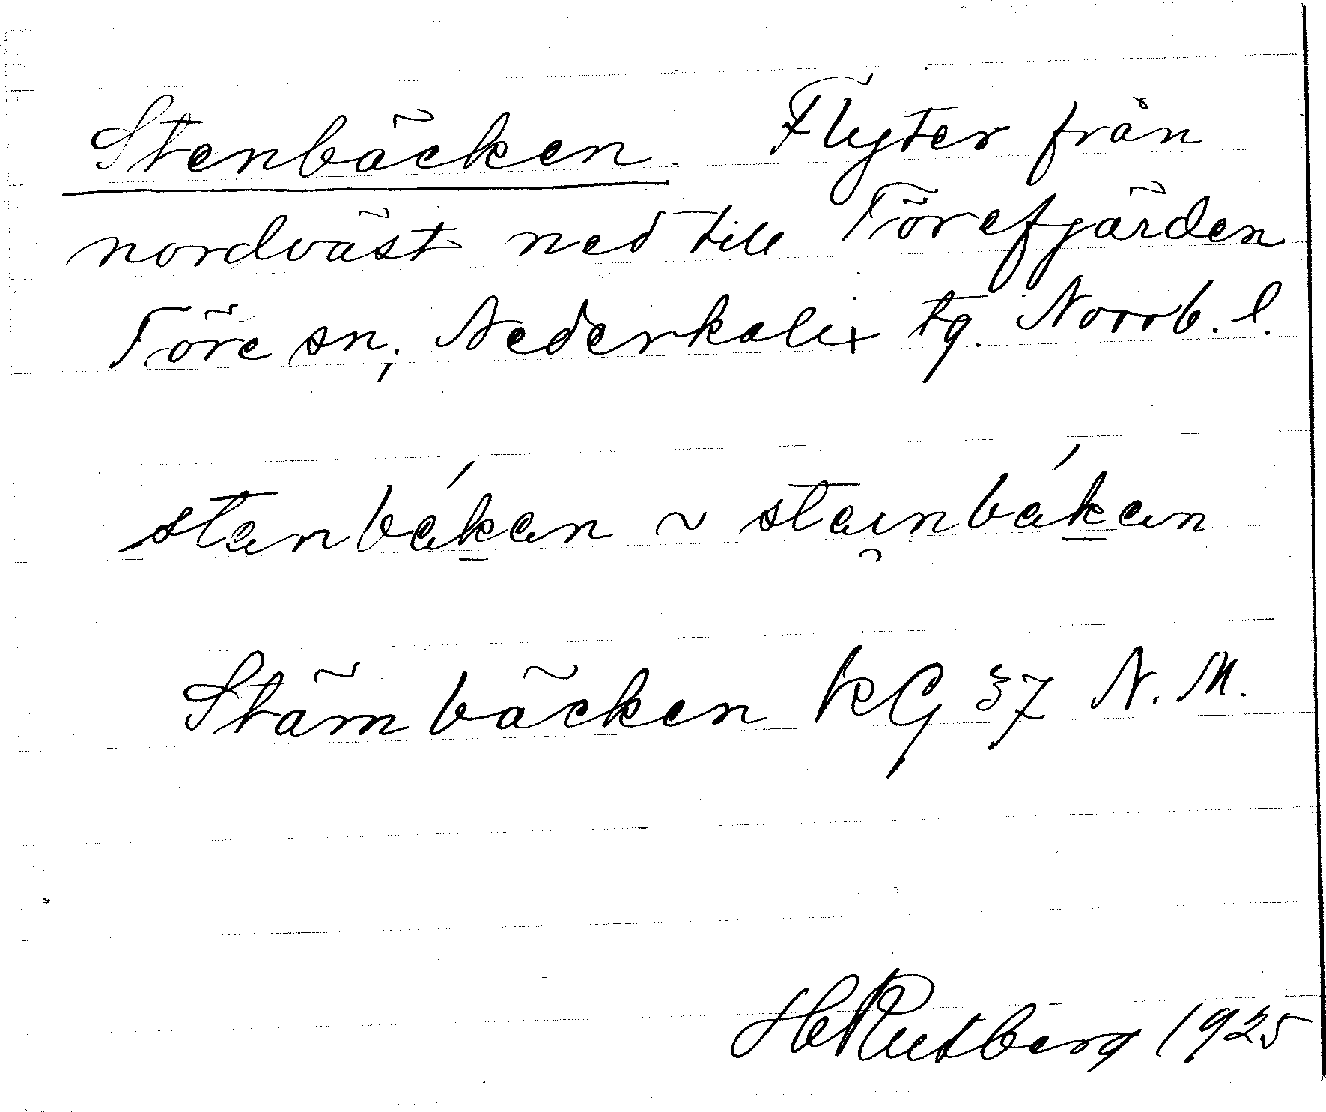 Stenbäcken Flyter från
nordväst ned till Törefjärden
Töre sn, Nederkalix tg. Norrb. l.
stanbákan ~ stainbákan
Stämbäcken KG 37 N. M.
H Rutberg 1925